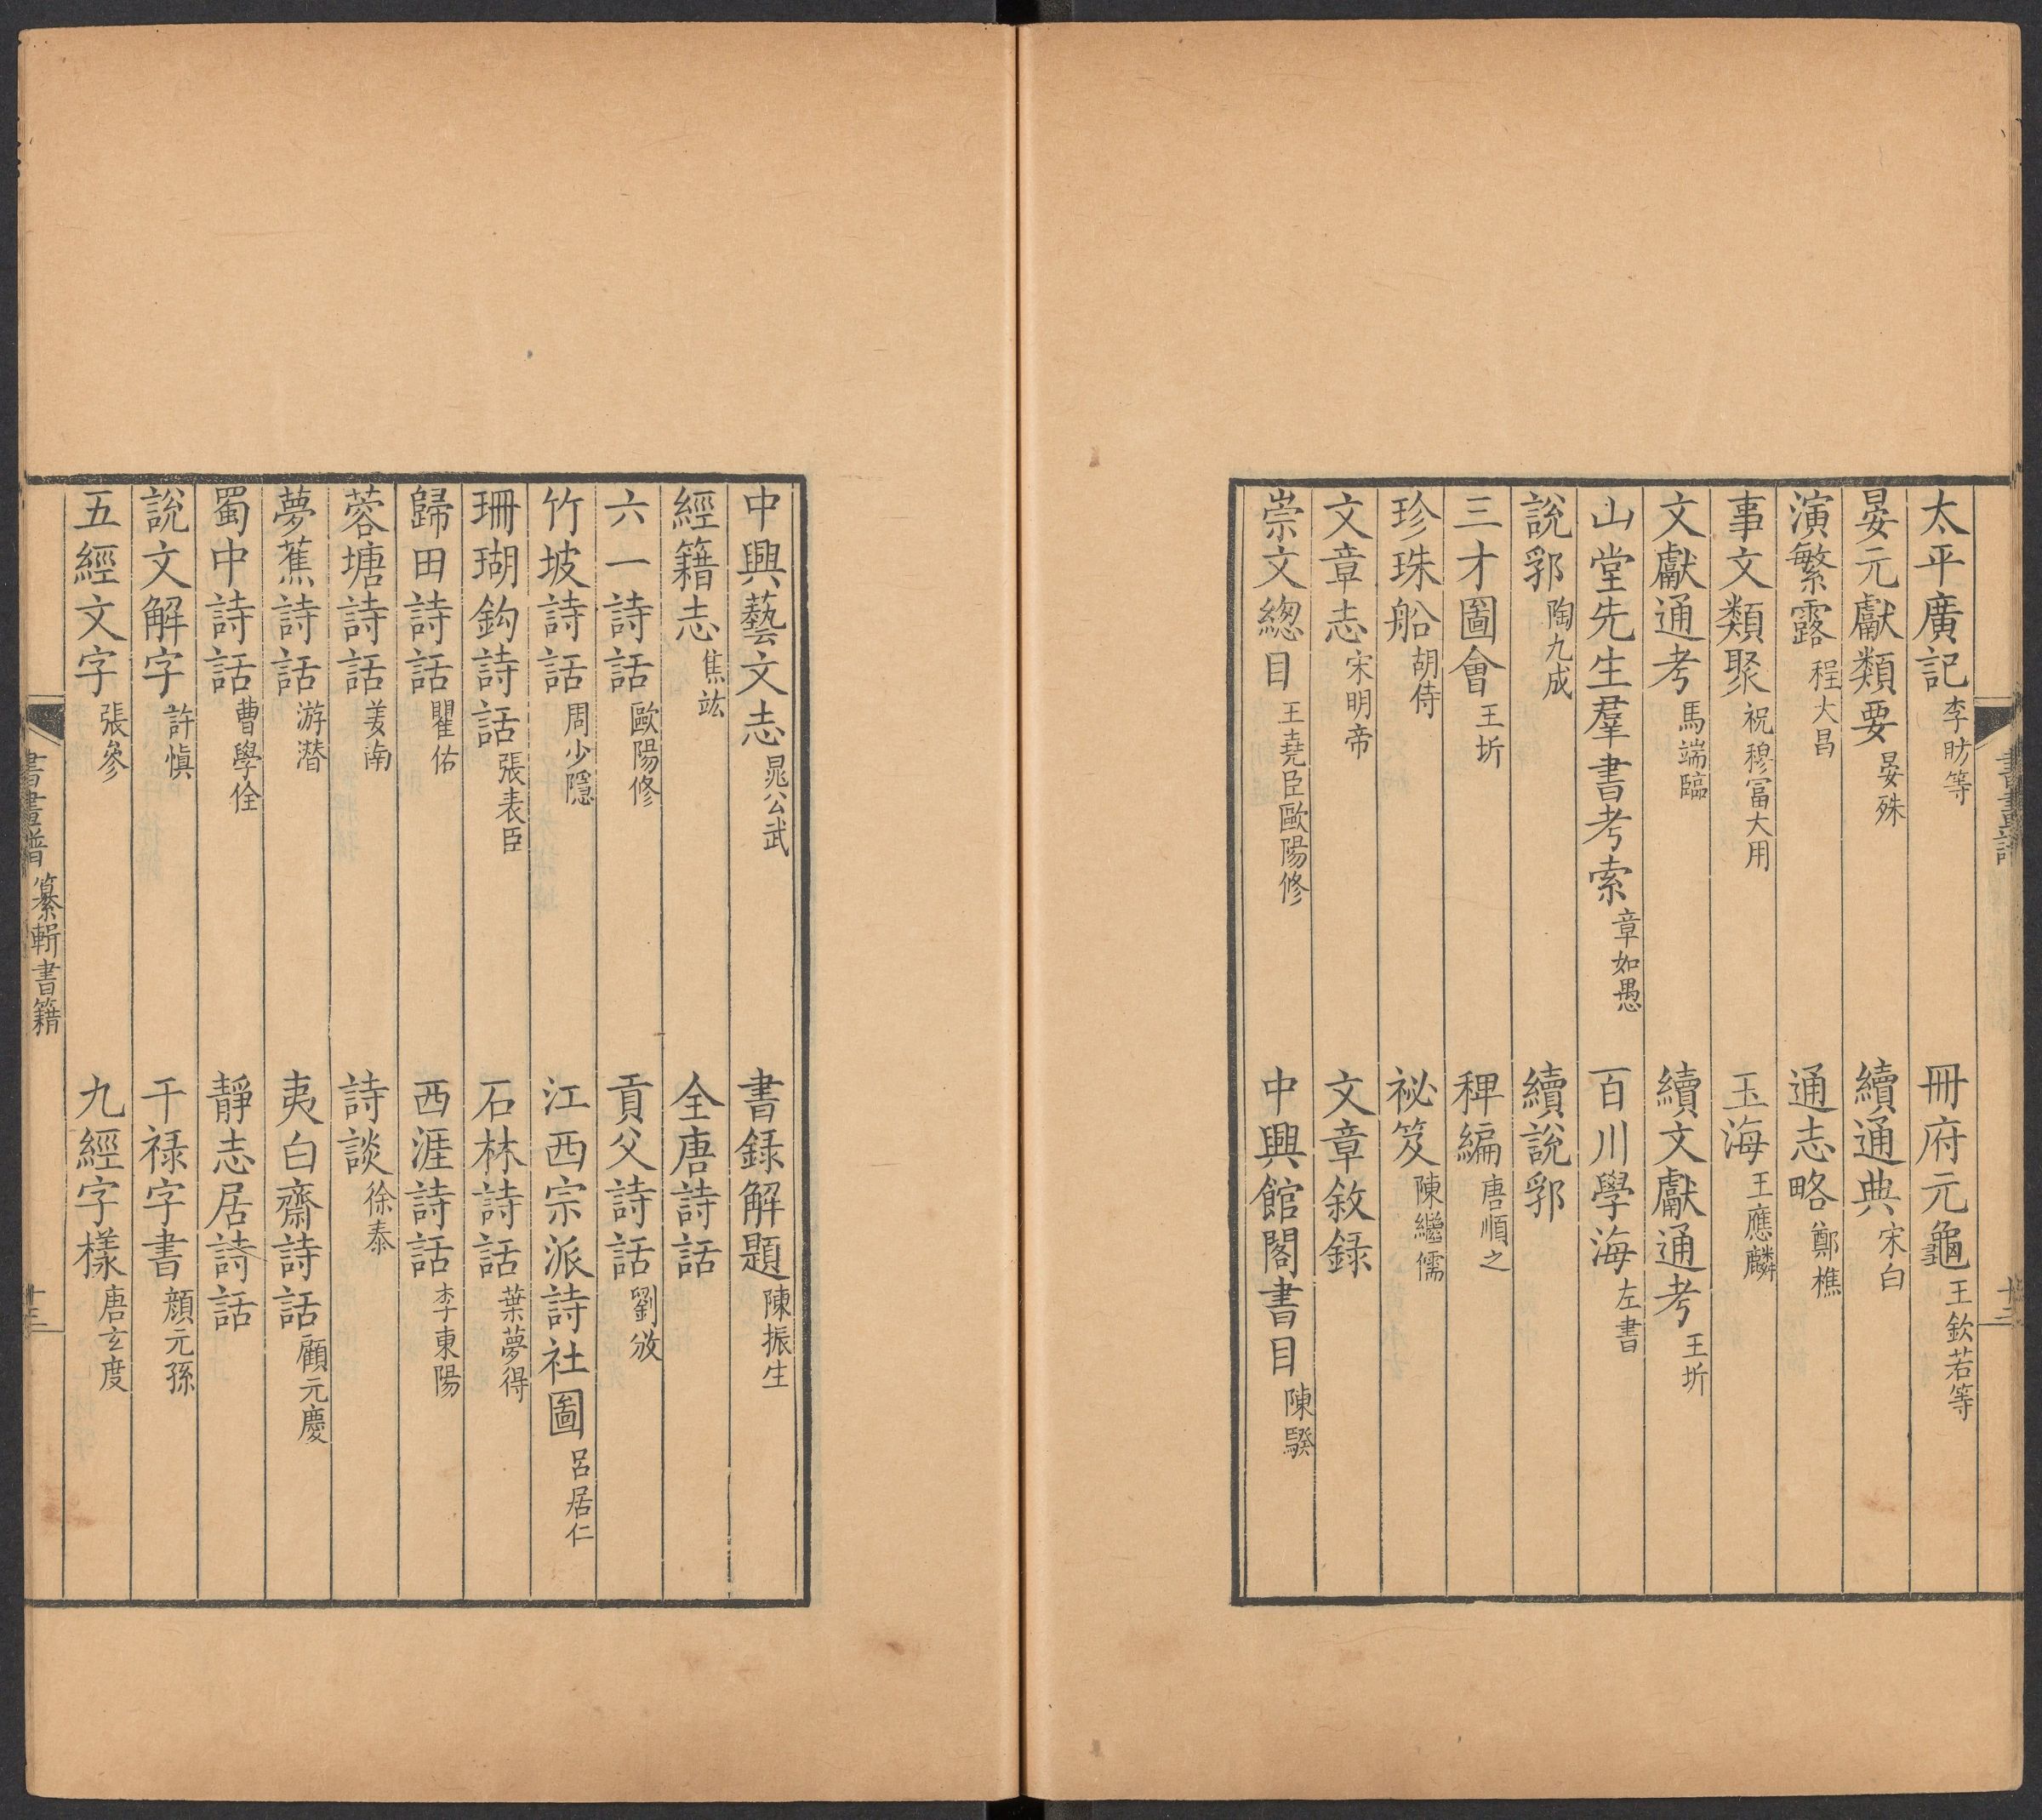 太平廣記 李昉等 冊府元龜 王欽若等
晏元獻類要 晏殊 續通典 宋白
演繁露 程大昌 通志略 鄭樵
事文類聚 祝穆富大用 玉海 王應麟
文獻通考 馬端臨 續文獻通考 王圻
山堂先生羣書考索 章如愚 百川學海 左書
說郛 陶九成 續說郛
三才圖會 王圻 稗編 唐順之
珍珠船 胡侍 祕笈 陳繼儒
文章志 宋明帝 文章敘錄
崇文緫目 王堯臣歐陽修 中興館閣書目 陳騤
中興藝文志 晁公武 書錄解題 陳振生
經籍志 焦竑 全唐詩話
六一詩話 歐陽修 貢父詩話 劉攽
竹坡詩話 周少隱 江西宗派詩社圖 呂居仁
珊瑚鈎詩話 張表臣 石林詩話 葉夢得
歸田詩話 瞿佑 西涯詩話 李東陽
蓉塘詩話 姜南 詩談 徐泰
夢蕉詩話 游潛 夷白齋詩話 顧元慶
蜀中詩話 曹學佺 靜志居詩話
說文解字 許慎 干祿字書 顏元孫
五經文字 張參 九經字樣 唐玄度
書畫譜 纂輯書籍